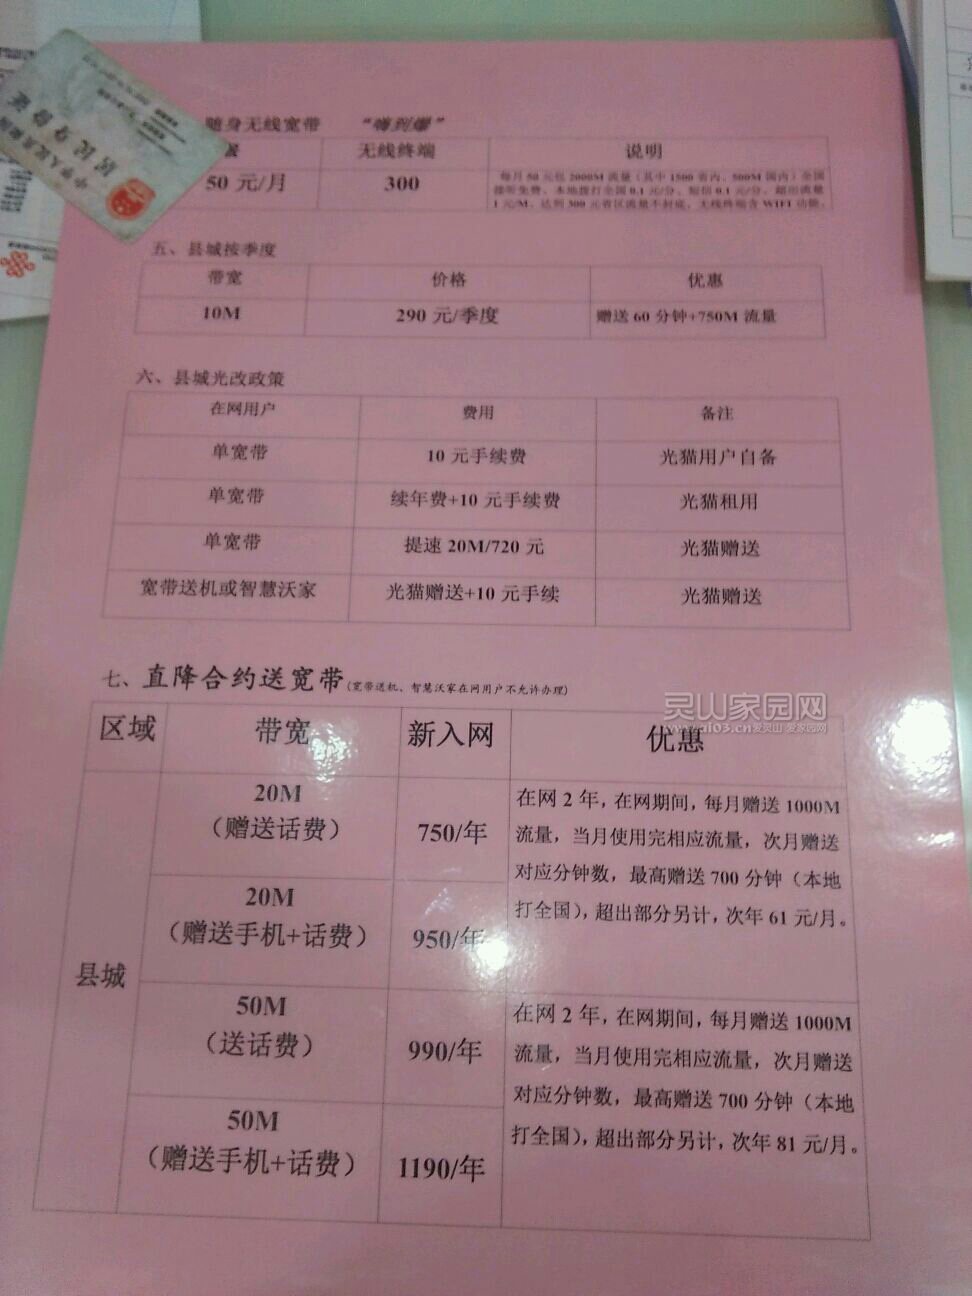 随身无线宽带 “嗨到爆”
无线终端 说明
50 元/月 300 每月 50 元包 2000M 流量（其中 1500 省内、500M 国内）全国
接听免费、本地拨打全国 0.1 元/分、短信 0.1 元/分、超出流量
1 元/M、达到 300 元省区流量不封底，无线终端含 WIFI 功能。
五、县城按季度
带宽 价格 优惠
10M 290 元/季度 赠送 60 分钟+750M 流量
六、县城光改政策
在网用户 费用 备注
单宽带 10 元手续费 光猫用户自备
单宽带 续年费+10 元手续费 光猫租用
单宽带 提速 20M/720 元 光猫赠送
宽带送机或智慧沃家 光猫赠送+10 元手续 光猫赠送
七、直降合约送宽带(宽带送机、智慧沃家在网用户不允许办理)
区域 带宽 新入网 优惠
县城
20M
（赠送话费）
750/年
20M
（赠送手机+话费）
950/年
在网 2 年，在网期间，每月赠送 1000M
流量，当月使用完相应流量，次月赠送
对应分钟数，最高赠送 700 分钟（本地
打全国），超出部分另计，次年 61 元/月。
50M
（送话费）
990/年
50M
（赠送手机+话费）
1190/年
在网 2 年，在网期间，每月赠送 1000M
流量，当月使用完相应流量，次月赠送
对应分钟数，最高赠送 700 分钟（本地
打全国），超出部分另计，次年 81 元/月。
居民身份证
灵山家园网
爱灵山 爱家园网